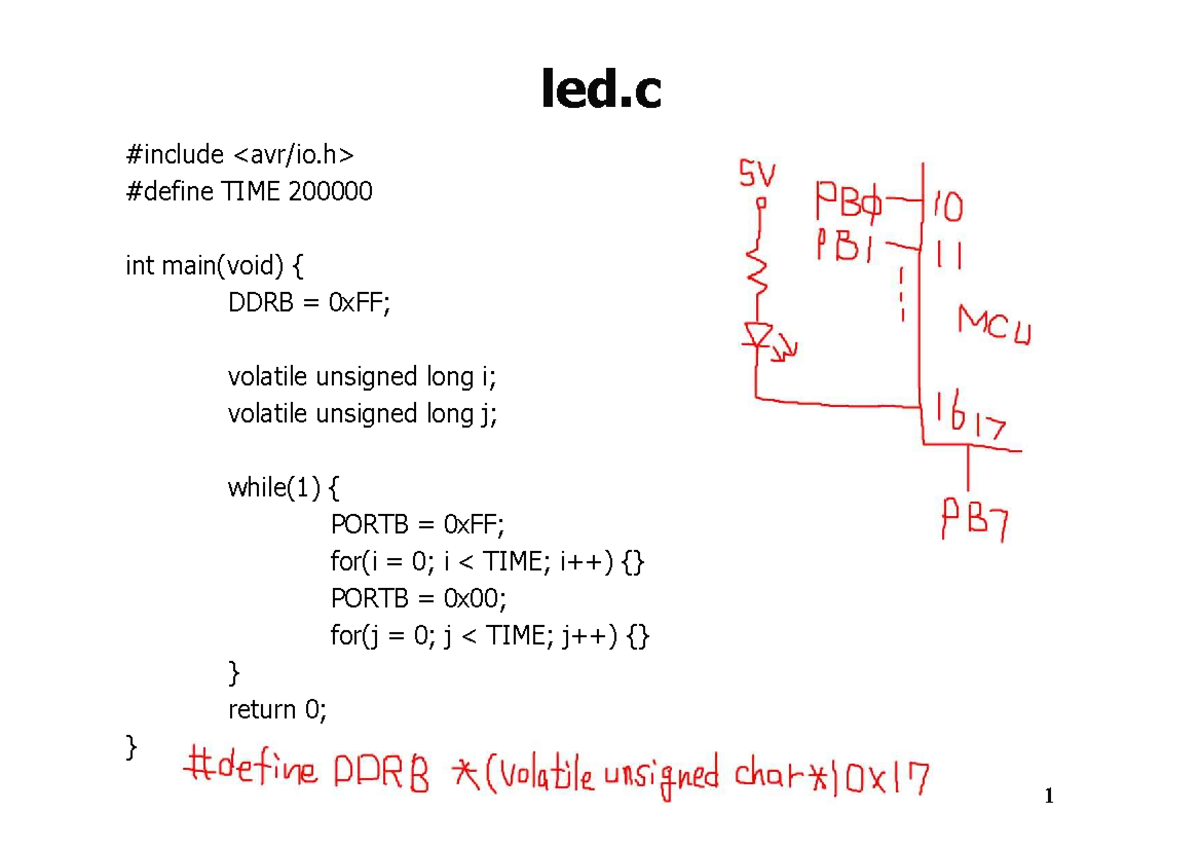 led.c
#include <avr/io.h>
#define TIME 200000
int main(void) {
DDRB = 0xFF;
volatile unsigned long i;
volatile unsigned long j;
while(1) {
PORTB = 0xFF;
for(i = 0; i < TIME; i++) {}
PORTB = 0x00;
for(j = 0; j < TIME; j++) {}
}
return 0;
}
5V
PB0 10
PB1 11
MCU
16 17
PB7
#define DDRB *(volatile unsigned char*)0x17
1